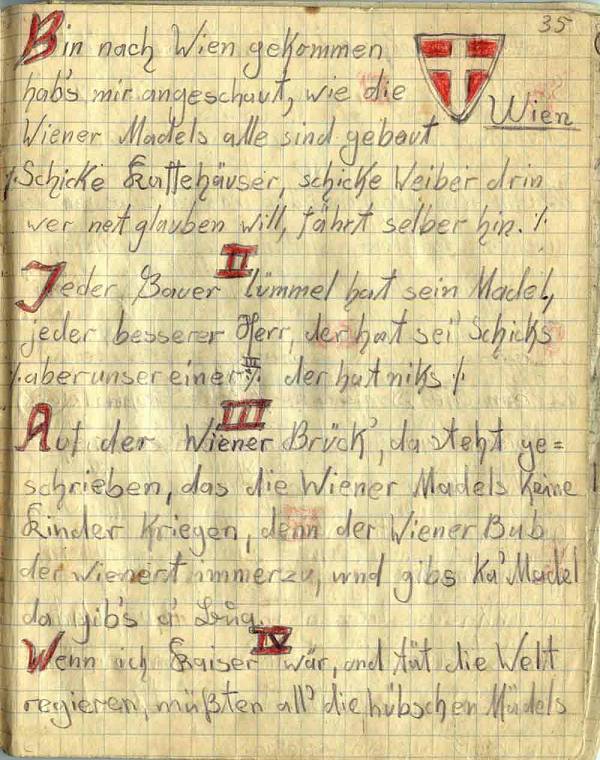 35
Bin nach Wien gekommen
hab's mir angeschaut, wie die
Wien
Wiener Madels alle sind gebaut
⁒ Schicke Kaffehäuser, schicke Weiber drin
wer net glauben will, fährt selber hin. ⁒
II
Jeder Bauer lümmel hat sein Madel,
jeder besserer Herr, der hat sei' Schicks
⁒ aber unser einer ⁒ der hat niks ⁒
III
Auf der Wiener Brück', da steht ge=
schrieben, das die Wiener Madels keine
Kinder kriegen, denn der Wiener Bub
der wienert immerzu, und gibs ka' Madel
da gib's a'
IV
Wenn ich Kaiser wär, und tät die Welt
regieren, müßten all' die hübschen Mädels